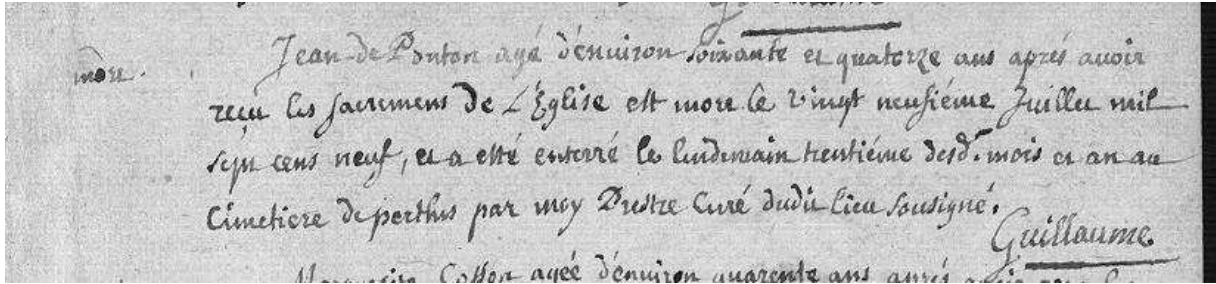 mort.
Jean de Ponton agé d'environ soixante et quatorze ans aprés avoir
reçu les sacremens de L'Église est mort le vingt neufiéme Juillet mil
sept cens neuf, et a esté enterré le lendemain trentiéme desd. mois et an au
Cimetiere de perthus par moy Prestre Curé dudit lieu sousigné.
Guillaume
agée d'environ quarente ans aprés